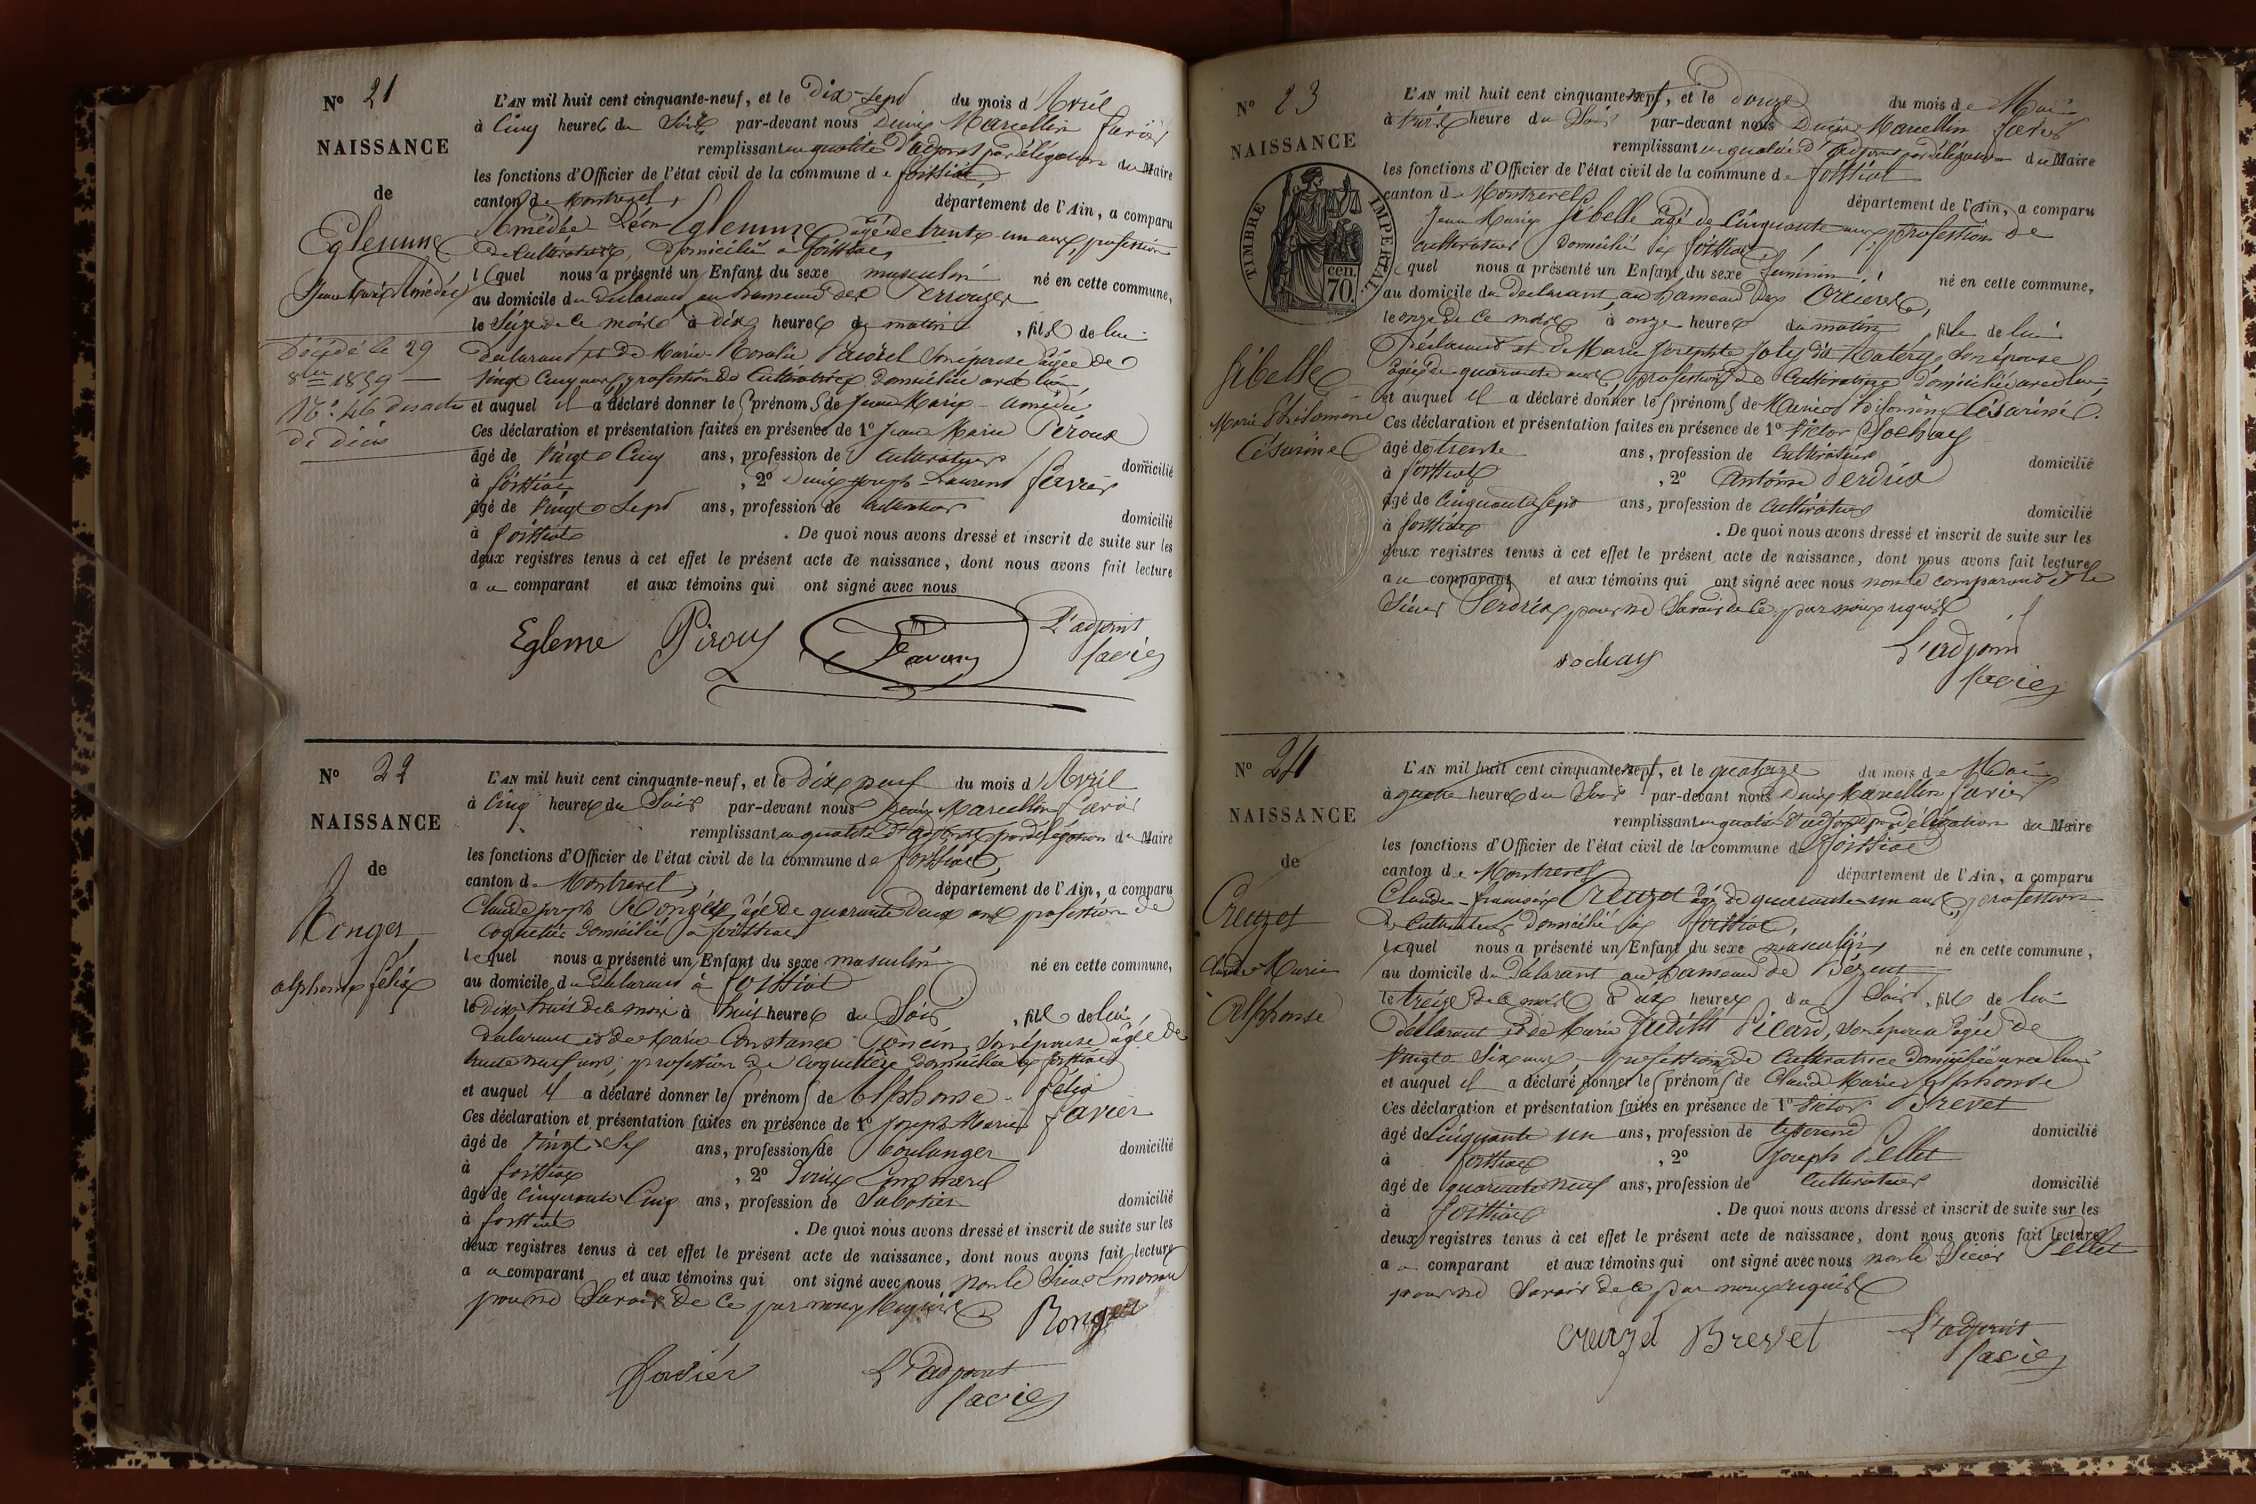 N° 21
NAISSANCE
de
Eglenne
Jean Marie Amédée
Décédé le 29
8bre 1859
N° 46 des actes
de décès
L'AN mil huit cent cinquante-neuf, et le Dix-Sept du mois d'Avril
à Cinq heures du Soir par-devant nous Denis Marcellin Favier
remplissant en qualité d'adjoint par délégation du Maire
les fonctions d'Officier de l'état civil de la commune de foissiat
canton de Montrevel, département de l'Ain, a comparu
Amédée Léon Eglenne agé de trente-un ans, profession
de Cultivateur, Domicilié à foissiat
lequel nous a présenté un Enfant du sexe masculin né en cette commune,
au domicile du Déclarant au hameau des Perrouzes
le Seize de ce mois à dix heures du matin, fils de lui
declarant et de Marie Rosalie son épouse âgée de
vingt Cinq ans, profession de Cultivatrice Domiciliée avec lui,
et auquel il a déclaré donner les prénoms de Jean Marie - amédée
Ces déclaration et présentation faites en présence de 1° Jean Marie Piroux
âgé de Vingt Cinq ans, profession de Cultivateur domicilié
à foissiat, 2° Denis joseph Laurent
âgé de Vingt Sept ans, profession de Cultivateur domicilié
à foissiat. De quoi nous avons dressé et inscrit de suite sur les
deux registres tenus à cet effet le présent acte de naissance, dont nous avons fait lecture
au comparant et aux témoins qui ont signé avec nous
Egleme Piroux L'adjoint
Favier
N° 22
NAISSANCE
de
Ronger
alphonse félix
L'AN mil huit cent cinquante-neuf, et le Dix neuf du mois d'Avril
à Cinq heures du Soir par-devant nous Denis Marcellin Favier
remplissant en qualité d'adjoint par délégation du Maire
les fonctions d'Officier de l'état civil de la commune de foissiat,
canton de Montrevel, département de l'Ain, a comparu
Claude joseph Ronger, âgé de quarante deux ans profession de
Coquetier domicilié à foissiat
lequel nous a présenté un Enfant du sexe masculin né en cette commune,
au domicile du Déclarant à foissiat
le dix huit de ce mois à huit heures du Soir, fils de lui
Declarant et de Marie Constance son épouse âgée de
trente neuf ans, profession de Coquetière domiciliée à foissiat
et auquel il a déclaré donner les prénoms de Alphonse - félix
Ces déclaration et présentation faites en présence de 1° joseph Marie favier
âgé de Vingt Six ans, profession de boulanger domicilié
à foissiat, 2° Denis
âgé de Cinquante Cinq ans, profession de Sabotier domicilié
à foissiat. De quoi nous avons dressé et inscrit de suite sur les
deux registres tenus à cet effet le présent acte de naissance, dont nous avons fait lecture
au comparant et aux témoins qui ont signé avec nous non le Sieur
pour ne Savoir de ce par nous Requis
Ronger
favier L'adjoint
favier
N° 23
NAISSANCE
TIMBRE IMPERIAL
70 cen.
Sibelle
Marie Philomene
Césarine
L'AN mil huit cent cinquante-sept, et le Douze du mois de Mai
à heure du Soir par-devant nous Denis Marcellin favier
remplissant en qualité d'adjoint par délégation du Maire
les fonctions d'Officier de l'état civil de la commune de foissiat
canton de Montrevel, département de l'Ain, a comparu
Jean Marie Sibelle âgé de Cinquante ans, profession de
cultivateur domicilié à foissiat,
lequel nous a présenté un Enfant du sexe féminin né en cette commune,
au domicile du declarant au hameau des Orcières,
le onze de ce mois à onze heures du matin, fille de lui
déclarant et de Marie Josephte Joly dit son épouse
âgée de quarante ans, profession de Cultivatrice domiciliée avec lui,
et auquel il a déclaré donner les prénoms de Marie Philomène Césarine.
Ces déclaration et présentation faites en présence de 1° Victor Sochay
âgé de trente ans, profession de Cultivateur domicilié
à foissiat, 2° Antoine Perdrix
âgé de Cinquante Sept ans, profession de Cultivateur domicilié
à foissiat. De quoi nous avons dressé et inscrit de suite sur les
deux registres tenus à cet effet le présent acte de naissance, dont nous avons fait lecture
au comparant et aux témoins qui ont signé avec nous non le comparant et le
Sieur Perdrix pour ne Savoir de ce par nous requis
sochay L'adjoint
favier
N° 24
NAISSANCE
de
Creuzet
Claude Marie
Alphonse
L'AN mil huit cent cinquante-sept, et le quatorze du mois de Mai
à quatre heures du Soir par-devant nous Denis Marcellin favier
remplissant en qualité d'adjoint par délégation du Maire
les fonctions d'Officier de l'état civil de la commune de foissiat
canton de Montrevel département de l'Ain, a comparu
Claude-françois Creuzet âgé de quarante un ans, profession
de Cultivateur domicilié à foissiat,
lequel nous a présenté un Enfant du sexe masculin né en cette commune,
au domicile du Déclarant au hameau de Bézeut
le treize de ce mois à dix heures du Soir, fils de lui
déclarant et de Marie Judith Picard, son épouse âgée de
Vingt Six ans, profession de Cultivatrice Domiciliée avec lui
et auquel il a déclaré donner les prénoms de Claude Marie Alphonse
Ces déclaration et présentation faites en présence de 1° Victor Brevet
âgé de Cinquante un ans, profession de tisserand domicilié
à foissiat, 2° Joseph Pellet
âgé de quarante neuf ans, profession de Cultivateur domicilié
à foissiat. De quoi nous avons dressé et inscrit de suite sur les
deux registres tenus à cet effet le présent acte de naissance, dont nous avons fait lecture
au comparant et aux témoins qui ont signé avec nous non le Sieur Pellet
pour ne Savoir de ce par nous requis
creuzet Brevet L'adjoint
favier